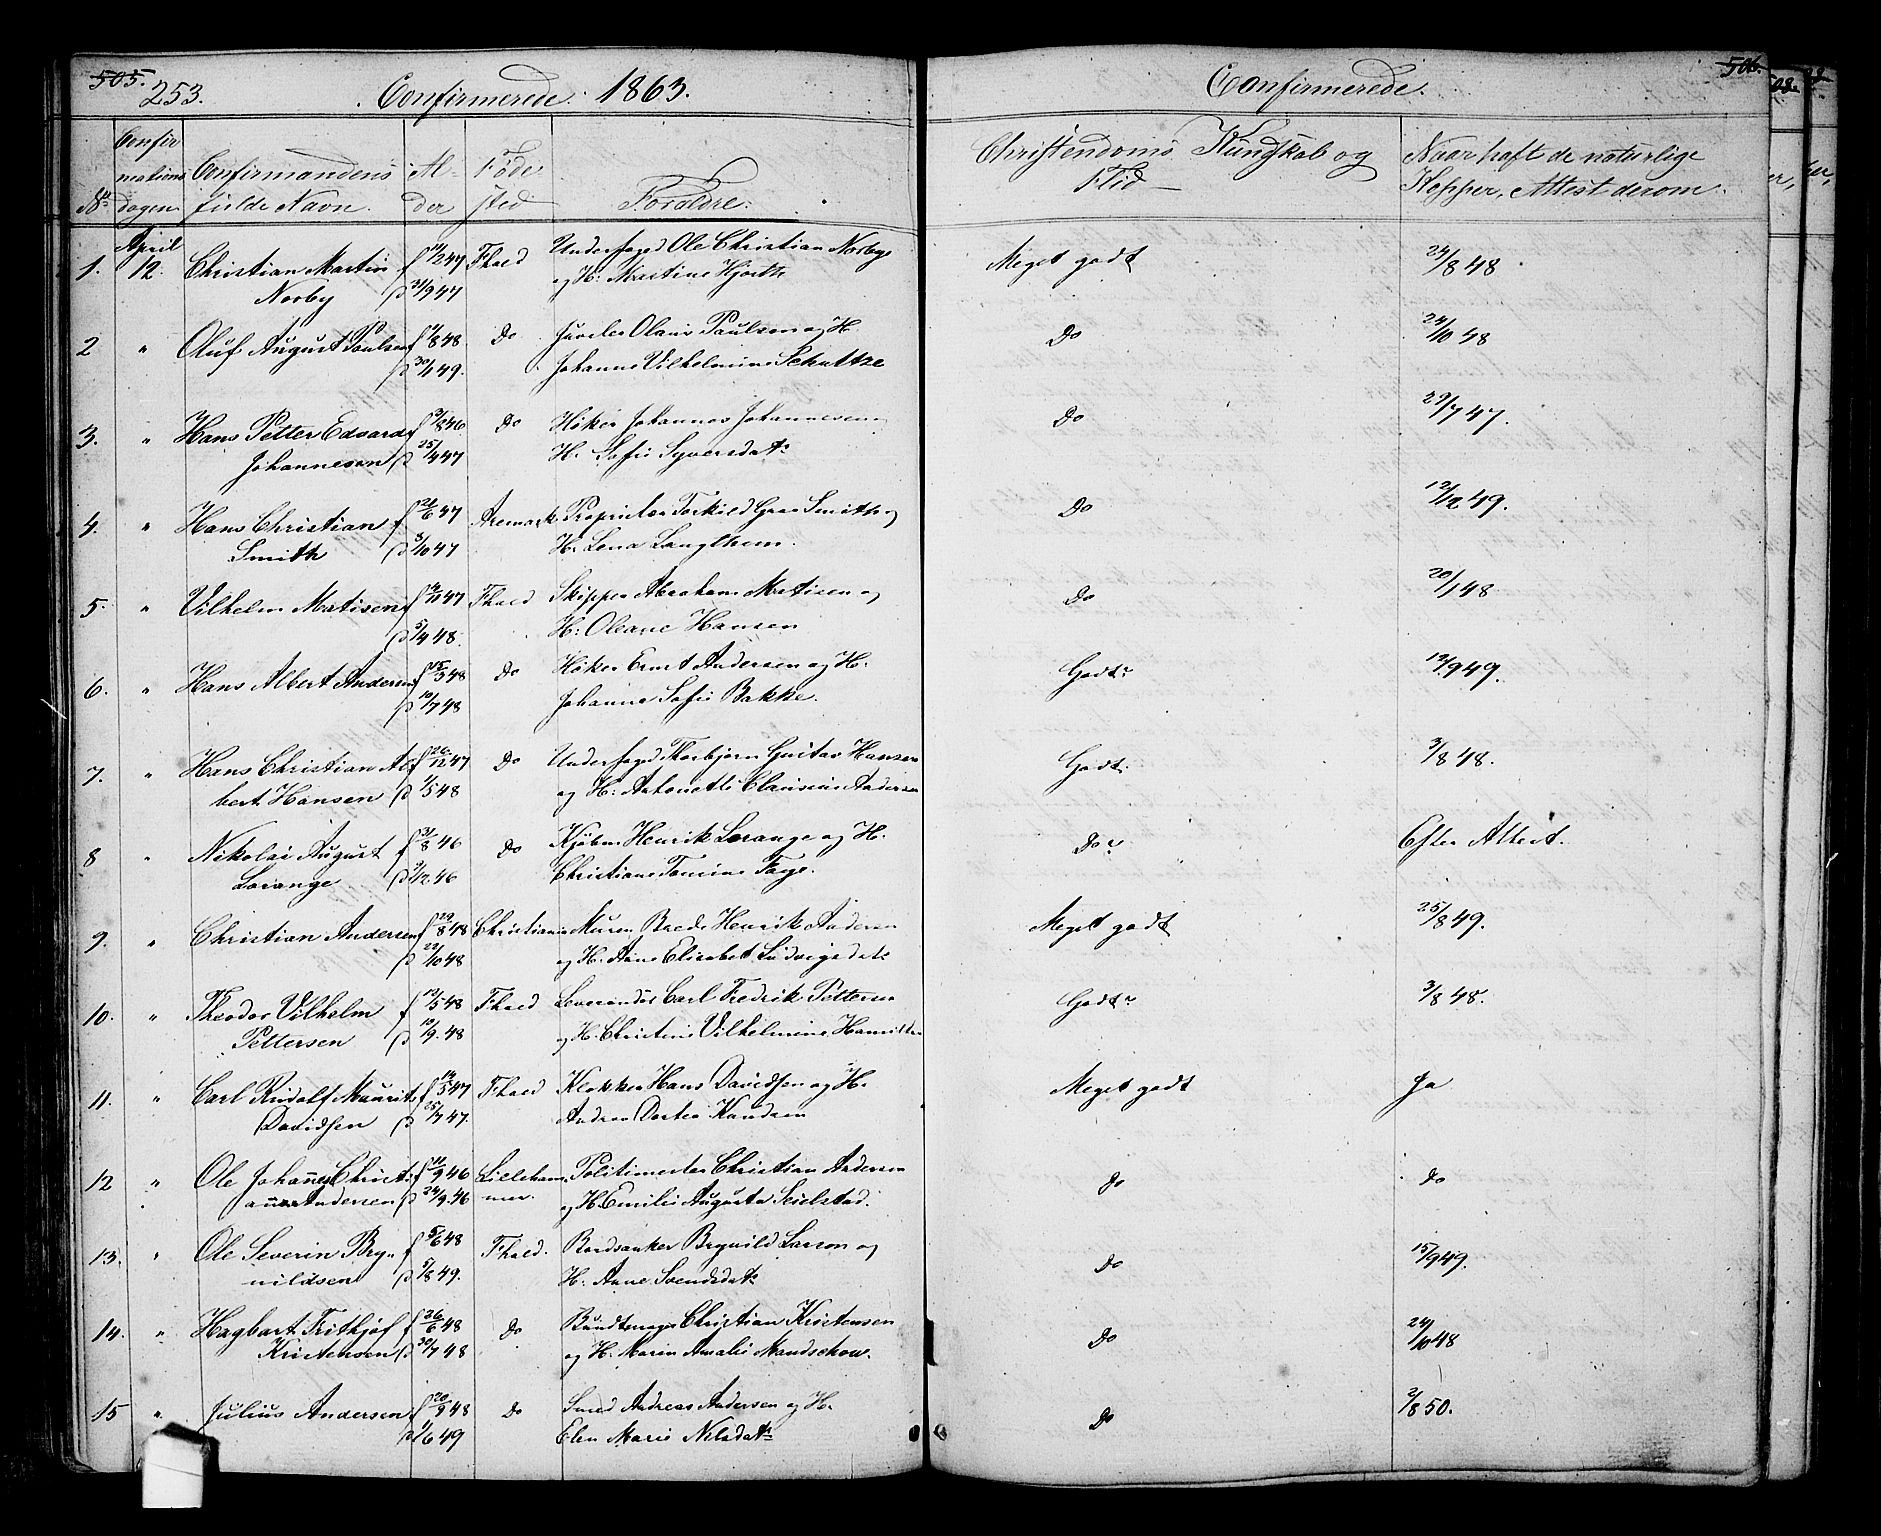 505.
253.
Confirmerede. 1863.
Nr.
Confir
mations
dagen
Confirmandens
fulde Navn.
Al-
der
Føde
sted
Foreldre.
1. April 12. Christian Martin f 11/2 47 Fhald Underfoged Ole Christian Norbye
Norby d 21/9 47 og H: Martine Hjorth
2 " Oluf August Poulsen f 1/8 48. Do Juveler Olaus Paulsen og H.
d 30/1 49. Johanne Vilhelmine Schultze
3. " Hans Petter Edvard f 3/8 46 Do Høker Johannes Johannesen og
Johannesen d 25/4 47 H. Sofie Syversdatr
4. " Hans Christian f 26/6 47 Aremark Proprietær Torkild Smith og
Smith d 3/10 47 H. Lena
5. " Vilhelm Matisen f 14/11 47 Fhald Skipper Abraham Matisen og
d 5/4 48. H: Oleane Hansen
6. " Hans Albert Andersen f 15/3 48 Do Høker Ernst Andersen og H.
d 10/7 48 Johanne Sofie Bakke.
7. " Hans Christian Al f 26/12 47 Do Underfoged Thorbjørn Gustav Hansen
bert Hansen d 1/5 48 og H. Antonette Andersen
8 " Nikolai August f 31/8 46 Do Kjøbm Henrik Lorange og H.
Lorange d 3/12 46 Christiane Tomine
9. " Christian Andersen f 29/8 48 Christiania Murer Brede Henrik Andersen
d 22/10 48 og H. Anne Elisabet Ludvigsdatr
10. " Theodor Vilhelm f 12/5 48 Fhald Leverandør Carl Fredrik Pettersen
Pettersen d 10/9. 48 og H. Christine Vilhelmine
11. " Carl Rudolf Maurits f 14/5 47 Fhald Klokker Hans Davidsen og H.
Davidsen d 25/7 47. Andrea Dortea Knudsen
12 " Ole Johannes Christi f 11/9 46 Lilleham Politimester Christian Andersen
anus Andersen d 24/9. 46 mer. og H. Emilie Augusta Seielstad.
13. " Ole Severin Bry- f 5/6 48 Fhald. Bordsanker Brynild Larson og
nildsen d 5/8 49. H. Anne Svendsdatr
14. " Hagbart Frithjof f 26/6 48 Do Bundtmager Christian Kristensen
Kristensen d 30/7 48 og H. Maren Amalie Mandschow.
15 " Julius Andersen f 20/9 48 Do Smed Andreas Andersen og H.
d 1/6 49 Elen Marie Nilsdatr
506.
Confirmerede.
Christendoms Kundskab og
Flid
Naar haft de naturlige
Kopper, Attest derom.
Meget godt 24/8 48.
Do 24/10 48
Do 29/7 47.
Do 12/12 49.
Do 20/1 48
Godt 12/9 49.
Godt. 3/8 48.
Do Efter Attest.
Meget godt 25/8 49.
Godt 3/8 48.
Meget godt Ja
Do Do
Do 15/9 49.
Do 24/10 48
Do 2/8 50.
508.